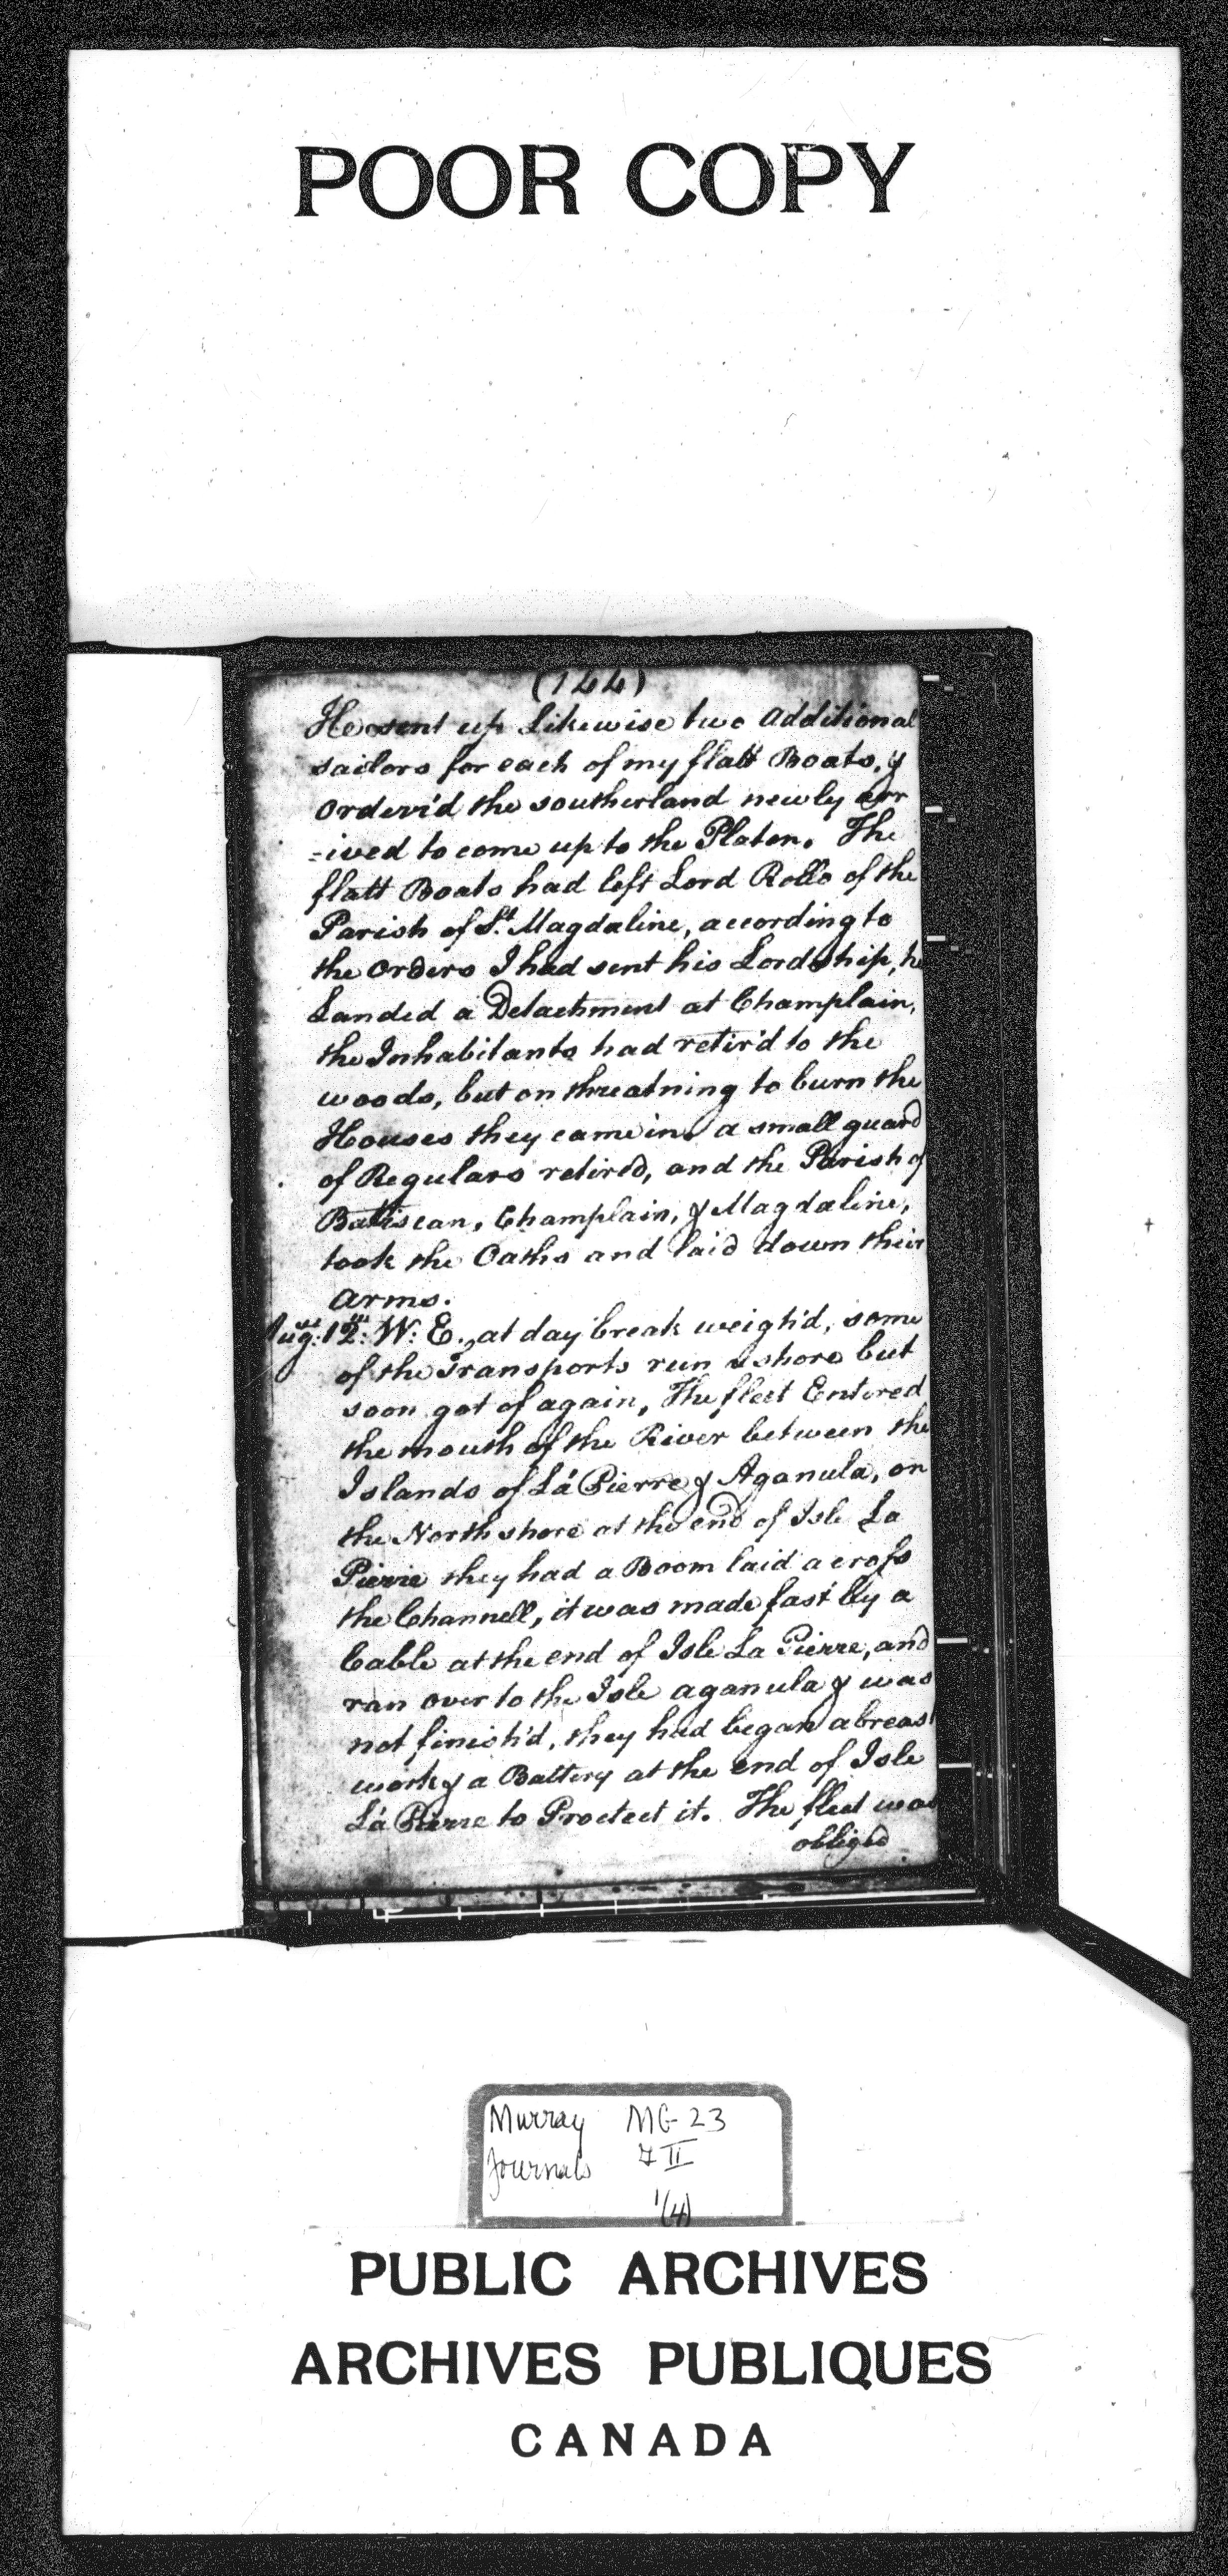 POOR COPY
(144)
He sent up Likewise two additional
sailors for each of my flatt Boats, &
order'd the southerland newly arr
=ived to come up to the Platon. The
flatt Boats had left Lord Rollo of the
Parish of St. Magdaline, according to
the orders I had sent his Lordship, he
Landed a Detachment at Champlain,
the Inhabitants had retir'd to the
woods, but on threatning to burn the
Houses they came in. a small guard
of Regulars retired, and the Parish of
Batiscan, Champlain, & Magdaline,
took the Oaths and laid down their
arms.
Aug: 12: W: E., at day break weigh'd, some
of the Transports run ashore but
soon got of again, The fleet Entered
the mouth of the River between the
Islands of Lá Pierre & Aganula, on
the North shore at the end of Isle La
Pierre they had a Boom laid across
the Channell, it was made fast by a
Cable at the end of Isle La Pierre, and
ran over to the Isle aganula & was
not finish'd, they had began a breast
work & a Battery at the end of Isle
Lá Pierre to Proctect it. The fleet was
obliged
Murray MG 23
Journals II
1(4)
PUBLIC ARCHIVES
ARCHIVES PUBLIQUES
CANADA